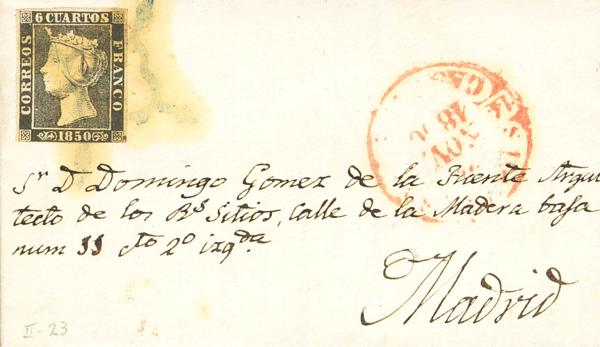 6 CUARTOS
CORREOS
FRANCO
1850
Sr D Domingo Gomez de la Fuente Arqui
tecto de los Rs Sitios, Calle de la Madera baja
num 11 cto 2º izqda.
Madrid
II-23